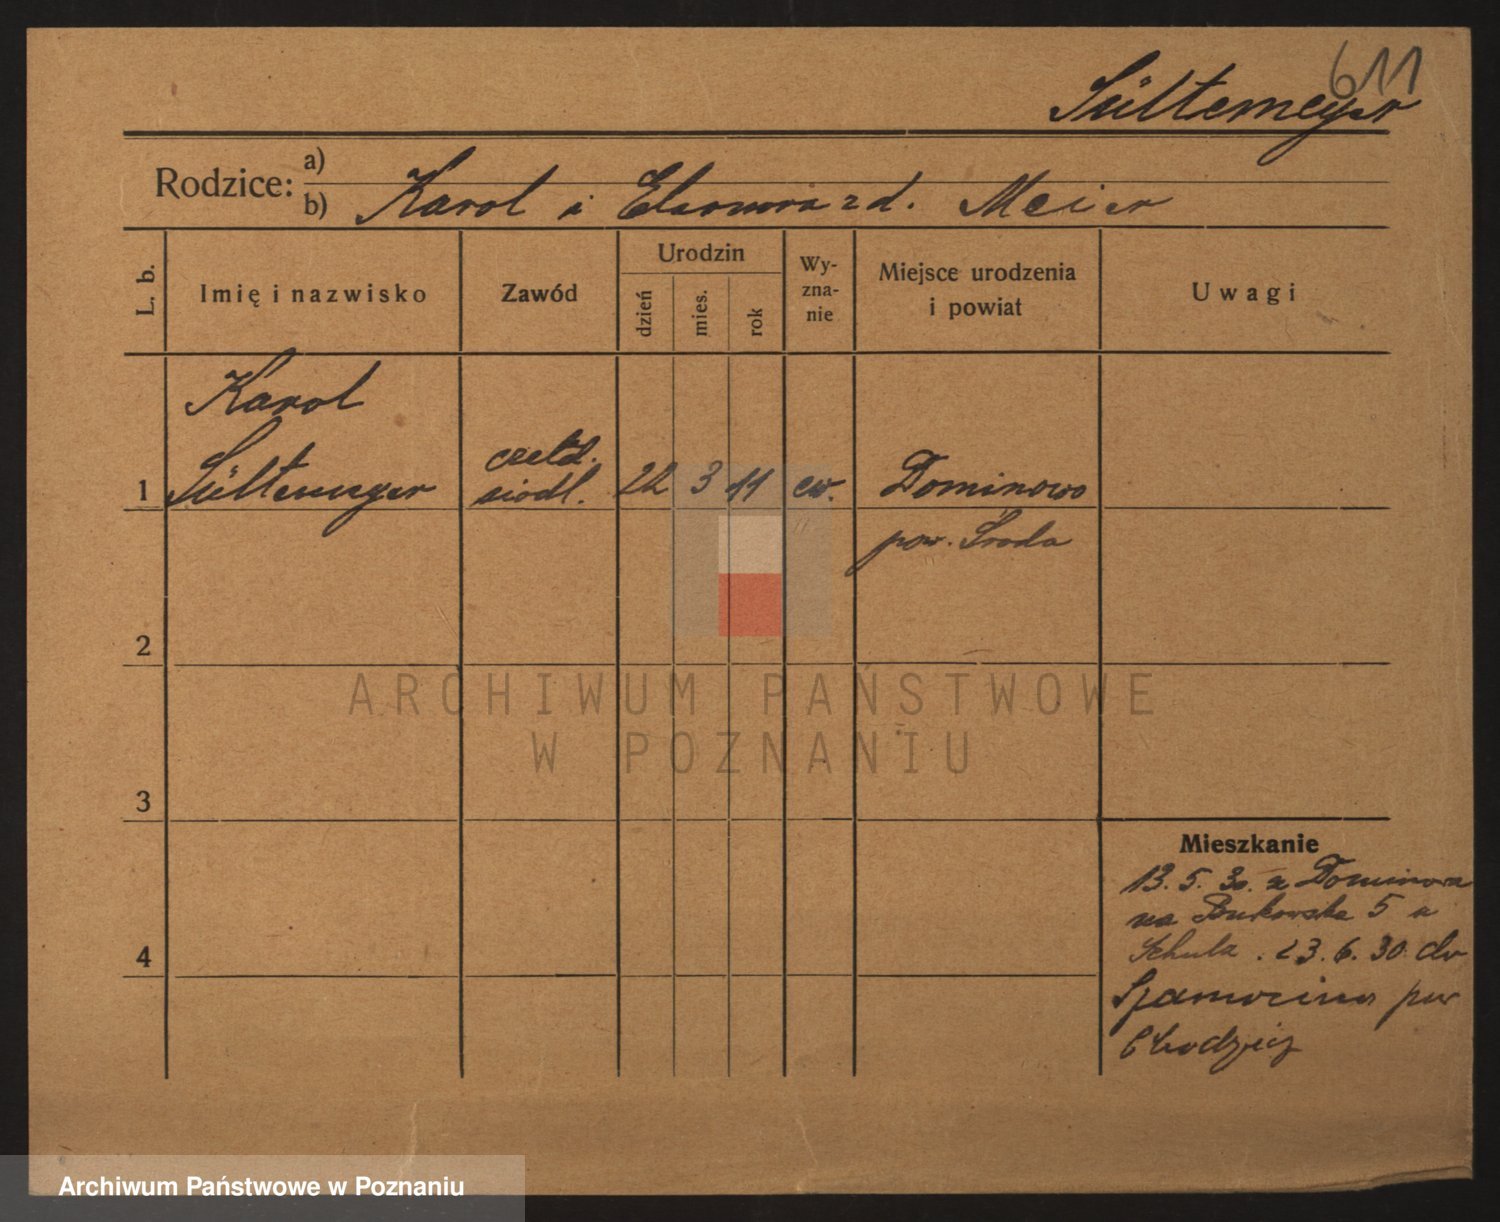 611
Sültemeyer
Rodzice:
a)
b) Karol i Eleonora zd. Meier
L. b.
Imię i nazwisko
Zawód
Urodzin
dzień
mies.
rok
Wy-
zna-
nie
Miejsce urodzenia
i powiat
Uwagi
Karol
1 Sültemeyer
czeld.
siodl.
22 3 11 ew. Dominowo
pow. Środa
2
3
4
Mieszkanie
13. 5. 30. z Dominowa
na Bukowska 5 u
Schulz . 23. 6. 30. do
Szamocina pow
Chodzież
ARCHIWUM PAŃSTWOWE
W POZNANIU
Archiwum Państwowe w Poznaniu